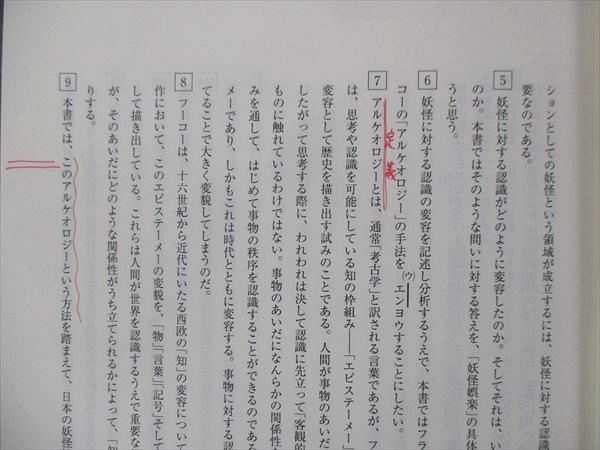 ションとしての妖怪という領域が成立するには、妖怪に対する認
要なのである。
5 妖怪に対する認識がどのように変容したのか。そしてそれは、い
のか。本書ではそのような問いに対する答えを、「妖怪娯楽」の具体
うと思う。
6 妖怪に対する認識の変容を記述し分析するうえで、本書ではフラ
コーの「アルケオロジー」の手法を(ウ)エンヨウすることにしたい。
定義
7 アルケオロジーとは、通常「考古学」と訳される言葉であるが、フ
は、思考や認識を可能にしている知の枠組み――「エピステーメー」
変容として歴史を描き出す試みのことである。人間が事物のあいだ
したがって思考する際に、われわれは決して認識に先立って「客観的
ものに触れているわけではない。事物のあいだになんらかの関係性
みを通して、はじめて事物の秩序を認識することができるのである
メーであり、しかもこれは時代とともに変容する。事物に対する認
てることで大きく変貌してしまうのだ。
8 フーコーは、十六世紀から近代にいたる西欧の「知」の変容につい
作において、このエピステーメーの変貌を、「物」「言葉」「記号」そして
して描き出している。これらは人間が世界を認識するうえで重要な
が、そのあいだにどのような関係性がうち立てられるかによって、「知
りする。
9 本書では、このアルケオロジーという方法を踏まえて、日本の妖怪